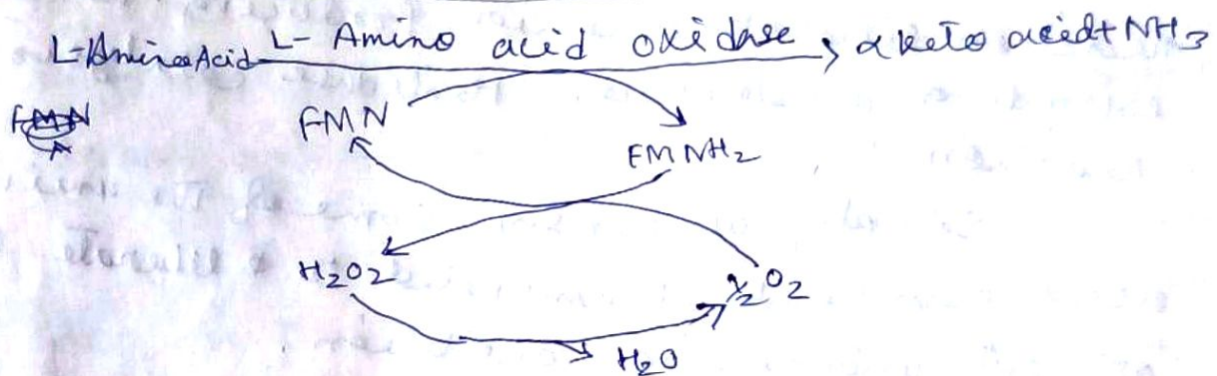 L-Amino Acid L- Amino acid oxidase α keto acid + NH3
FMN FMN
FMNH2
H2O2 ½ O2
H2O